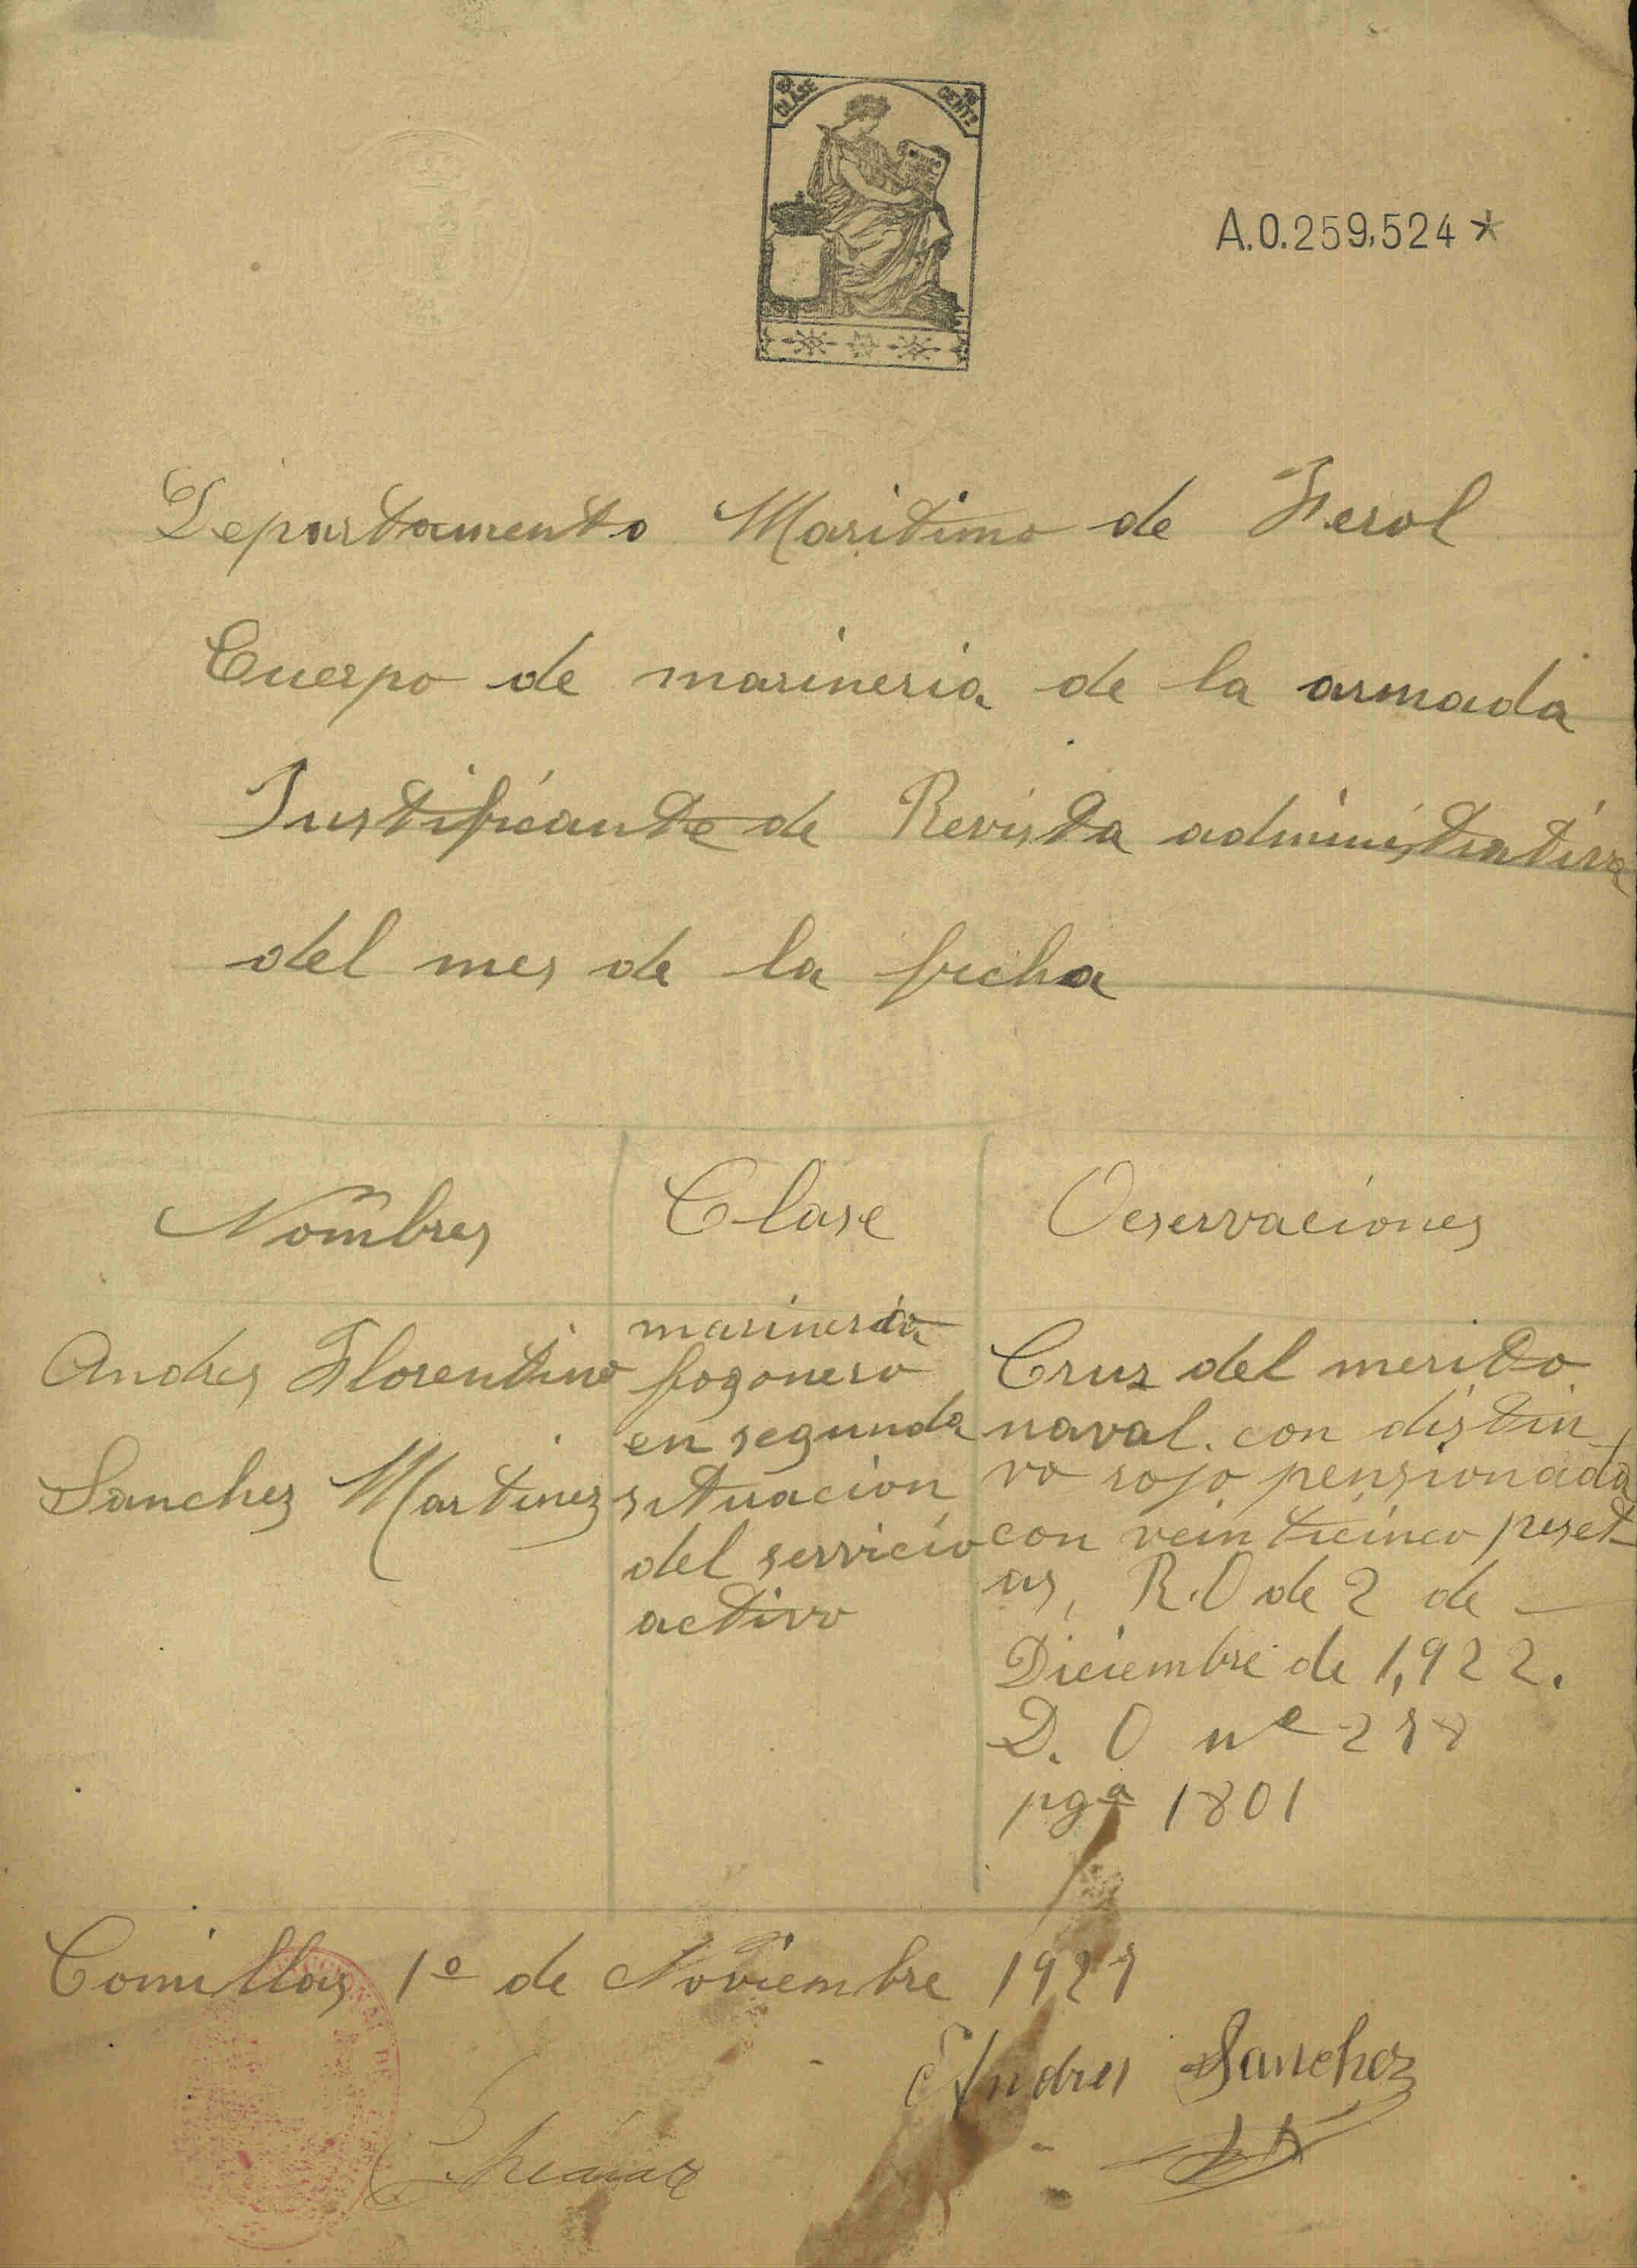 CLASE
A.0.259,524*
Departamento Maritimo de Ferol
Cuerpo de marineria de la armada
Justificante de Revista administrativa
del mes de la fecha
Nombres Clase Oeservaciones
Andres Florentino
Sanchez Martinez
marineria
fogonero
en segunda
situacion
del servicio
activo
Cruz del merito
naval. con distin
vo rojo pensionada
con veinticinco peset
as, R.O de 2 de
Diciembre de 1,922.
D. O nº
pgª 1801
Comillas 1º de Noviembre
Andres Sanchez